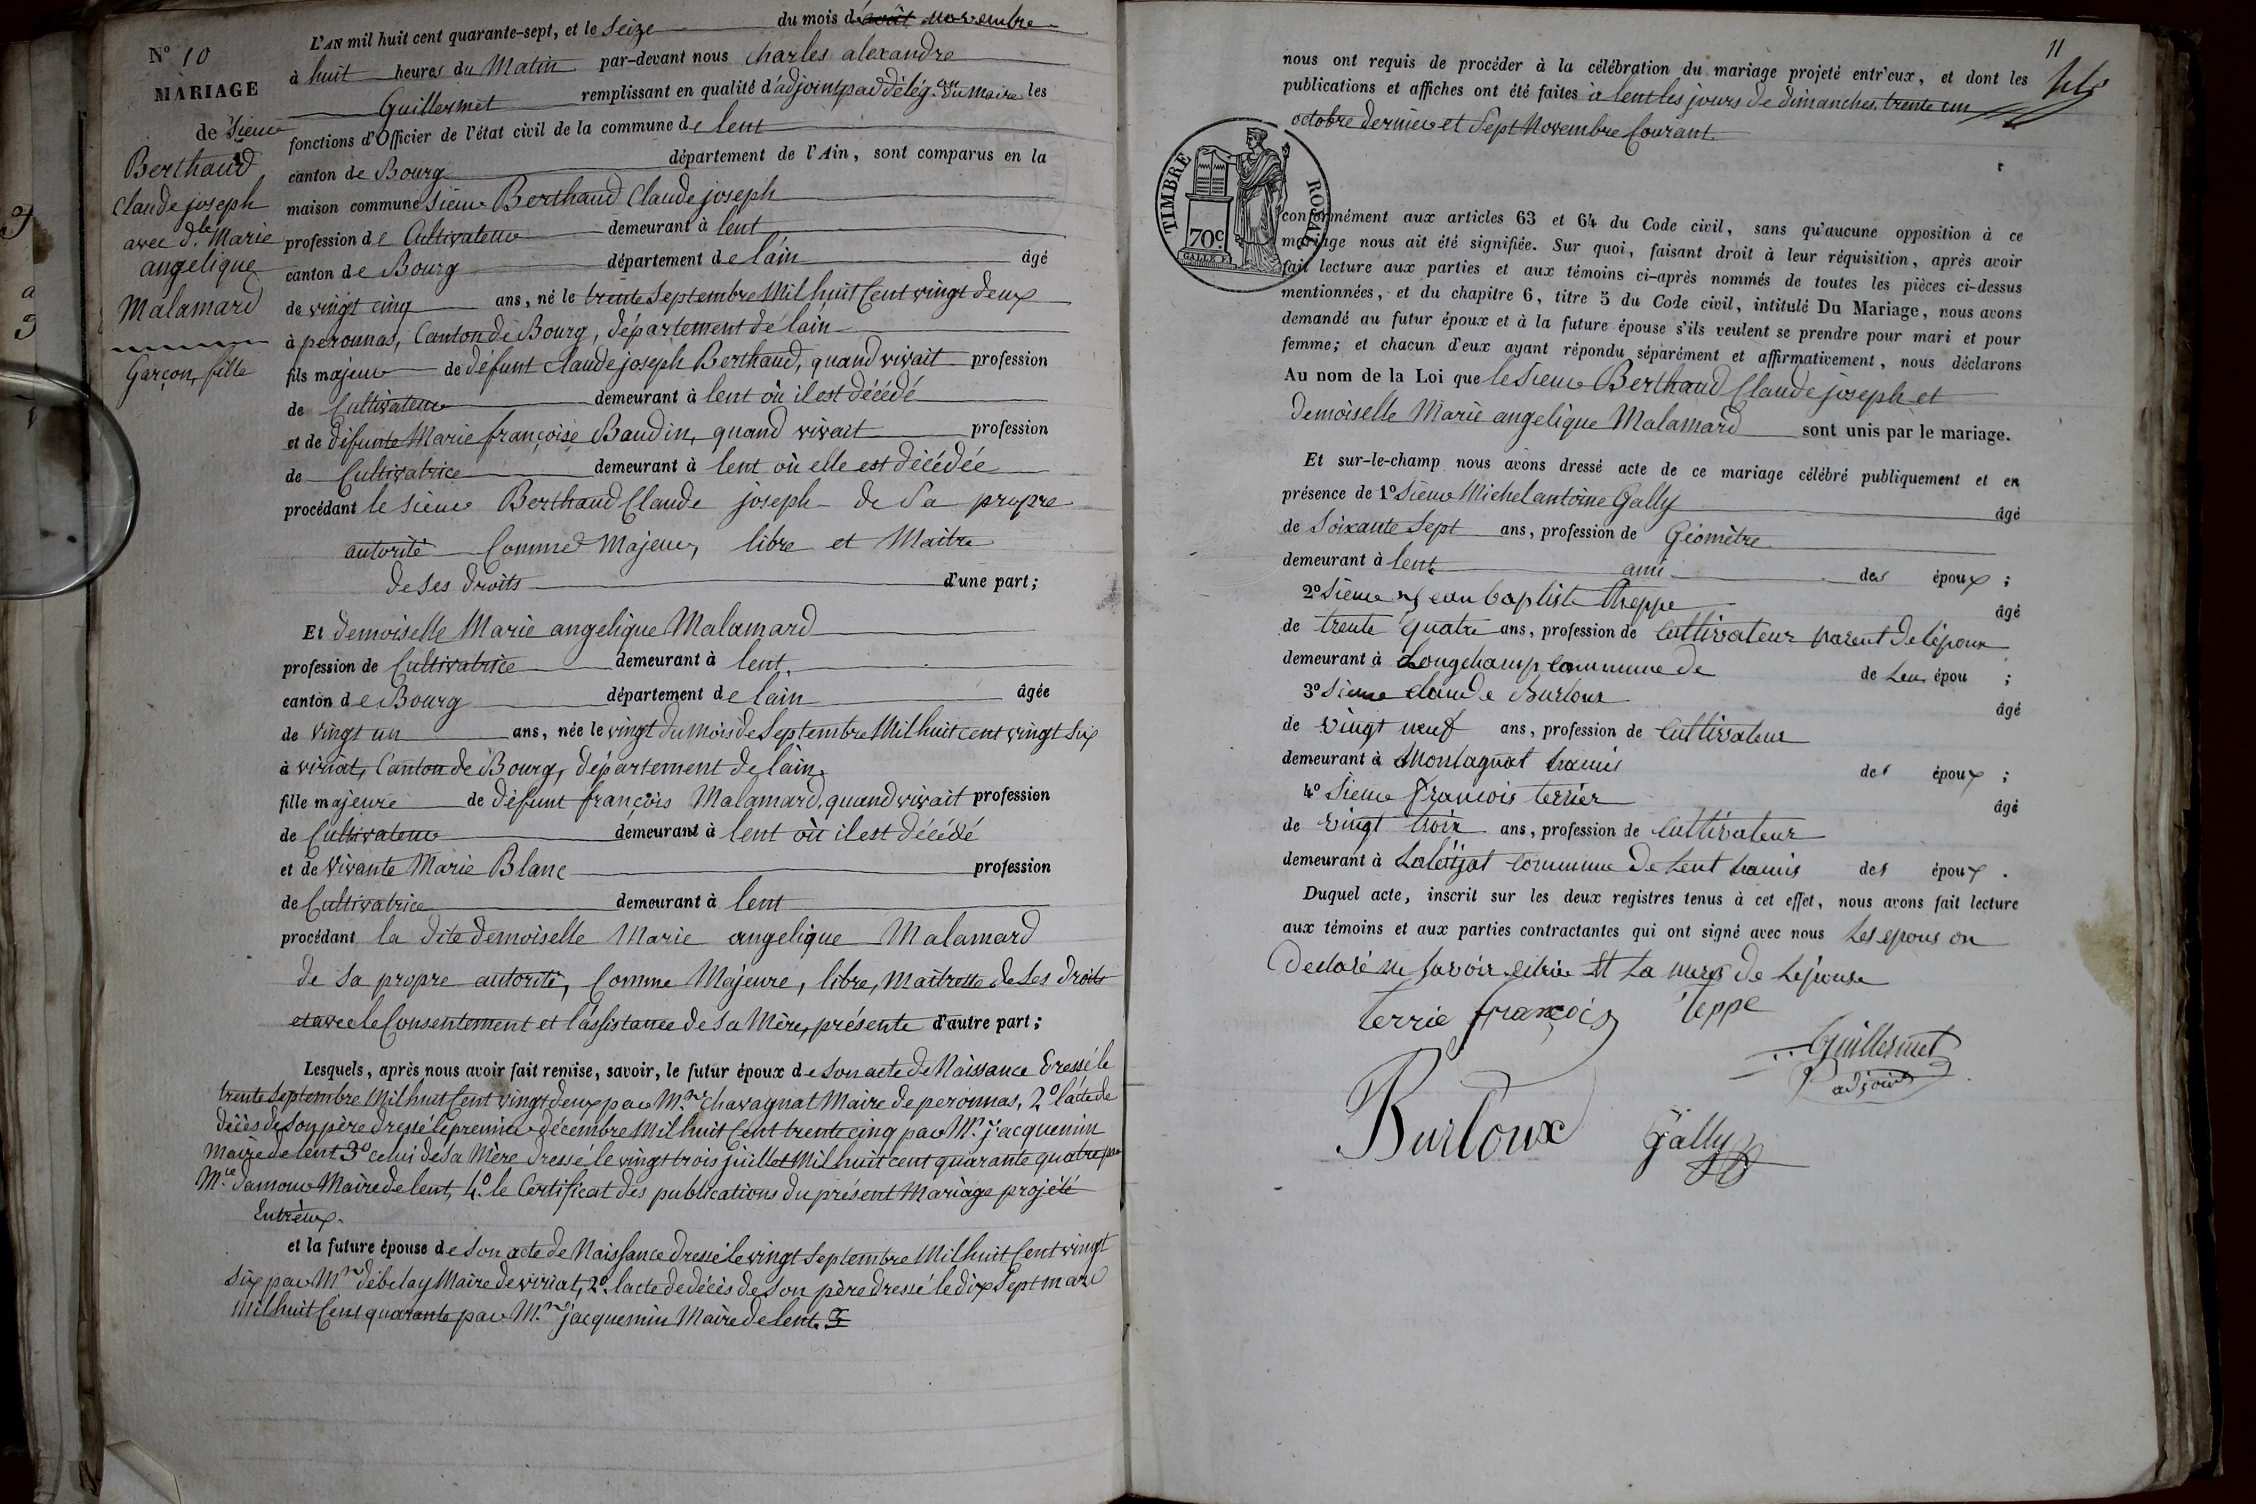 N° 10
MARIAGE
de Sieur
Berthaud
Claude joseph
avec d.lle Marie
angelique
Malamard
Garçon, fille
L'AN mil huit cent quarante-sept, et le Seize du mois d'août novembre
à huit heures du Matin par-devant nous Charles alexandre
Guillermet remplissant en qualité d'adjoint par délég.on du Maire les
fonctions d'Officier de l'état civil de la commune de lent
canton de Bourg département de l'Ain, sont comparus en la
maison commune Sieur Berthaud Claude joseph
profession de Cultivateur demeurant à lent
canton de Bourg département de l'ain âgé
de vingt cinq ans, né le trente Septembre Mil huit Cent vingt deux
à peronnas, Canton de Bourg, département de lain
fils majeur de défunt Claude joseph Berthaud, quand vivait profession
de Cultivateur demeurant à lent où il est décédé
et de défunte Marie françoise Baudin, quand vivait profession
de Cultivatrice demeurant à lent où elle est décédée
procédant le sieur Berthaud Claude joseph de Sa propre
autorité Comme Majeur, libre et Maitre
de ses droits d'une part;
Et demoiselle Marie angelique Malamard
profession de Cultivatrice demeurant à lent,
canton de Bourg département de lain âgée
de vingt un ans, née le vingt du Mois de Septembre Mil huit cent vingt Six
à viriat, Canton de Bourg, département de lain,
fille majeure de défunt françois Malamard, quand vivait profession
de Cultivateur demeurant à lent où il est décédé
et de vivante Marie Blanc profession
de Cultivatrice demeurant à lent
procédant la dite demoiselle Marie angelique Malamard
de sa propre autorité, Comme Majeure, libre, Maitresse de Ses droits
et avec le Consentement et l'assistance de Sa Mère, présente d'autre part;
Lesquels, après nous avoir fait remise, savoir, le futur époux de Son acte de Naissance Dressé le
trente Septembre Mil huit Cent vingt deux par M.r Chavagnat Maire de peronnas, 2° l'acte de
décès de Son père dressé le premier décembre Mil huit Cent trente cinq par M.r jacquemin
Maire de lent 3° celui de Sa Mère dressé le vingt trois juillet Mil huit cent quarante quatre par
M.r damour Maire de lent, 4° le Certificat des publications du présent Mariage projété
Entr'eux.
et la future épouse de Son acte de Naissance dressé le vingt Septembre Mil huit Cent vingt
Six par M.r débelay Maire de viriat, 2° l'acte de décès de Son père dressé le dix Sept mars
Mil huit Cent quarante par M.r jacquemin Maire de lent.
11
nous ont requis de procéder à la célébration du mariage projeté entr'eux, et dont les
publications et affiches ont été faites à lent les jours de dimanches, trente un
octobre dernier et Sept Novembre Courant.
TIMBRE ROYAL
70c
conformément aux articles 63 et 64 du Code civil, sans qu'aucune opposition à ce
mariage nous ait été signifiée. Sur quoi, faisant droit à leur réquisition, après avoir
fait lecture aux parties et aux témoins ci-après nommés de toutes les pièces ci-dessus
mentionnées, et du chapitre 6, titre 5 du Code civil, intitulé Du Mariage, nous avons
demandé au futur époux et à la future épouse s'ils veulent se prendre pour mari et pour
femme; et chacun d'eux ayant répondu séparément et affirmativement, nous déclarons
Au nom de la Loi que le Sieur Berthaud Claude joseph et
Demoiselle Marie angelique Malamard sont unis par le mariage.
Et sur-le-champ nous avons dressé acte de ce mariage célébré publiquement et en
présence de 1° Sieur Michel antoine Gally âgé
de Soixante Sept ans, profession de Géomètre
demeurant à lent ami des époux;
2° Sieur Jean baptiste theppe âgé
de trente quatre ans, profession de Cultivateur parent de lépoux
demeurant à Longchamp commune de de Lent épou ;
3° Sieur Claude Burtoux âgé
de vingt neuf ans, profession de Cultivateur
demeurant à Montagnat hamis des époux;
4° Sieur François terrier âgé
de vingt troix ans, profession de Cultivateur
demeurant à commune de Lent hamis des époux.
Duquel acte, inscrit sur les deux registres tenus à cet effet, nous avons fait lecture
aux témoins et aux parties contractantes qui ont signé avec nous Les epous on
Declaré ne Savoir Ecrire Et La mere de Lépouse
terrie françois teppe
Guillermet
adjoint
Burtoux Gally